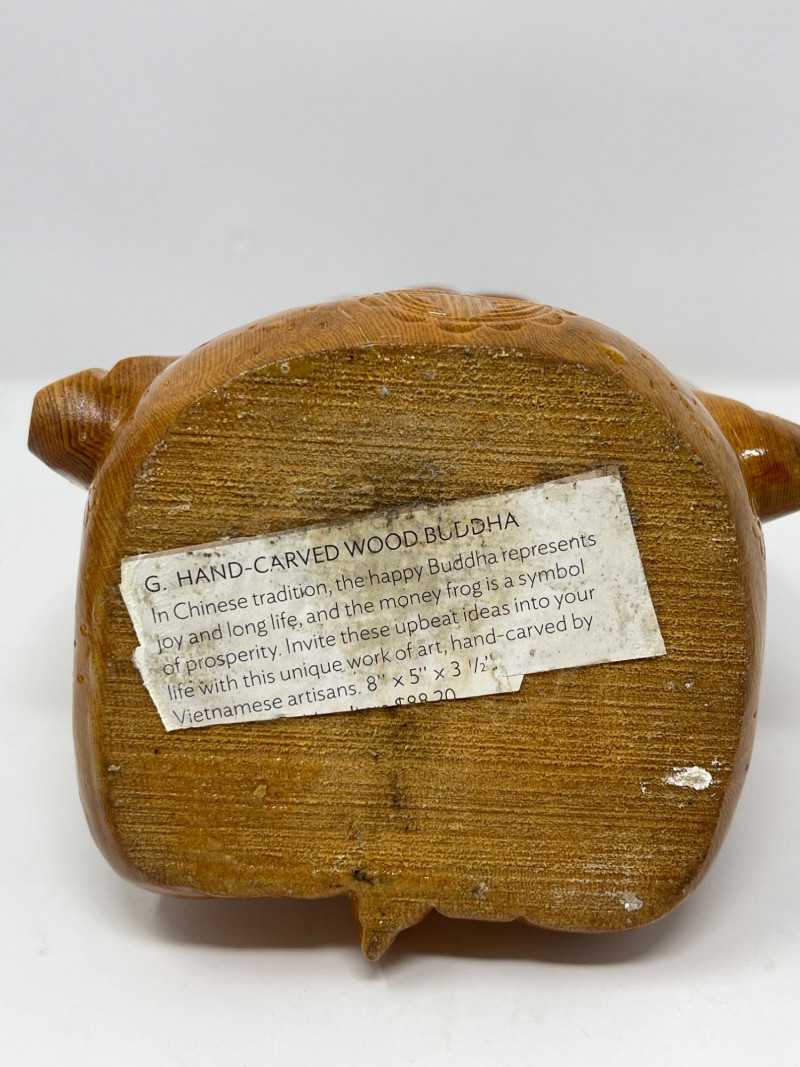 G. HAND-CARVED WOOD BUDDHA
In Chinese tradition, the happy Buddha represents
joy and long life, and the money frog is a symbol
of prosperity. Invite these upbeat ideas into your
life with this unique work of art, hand-carved by
Vietnamese artisans. 8" x 5" x 3 1/2".
$88.20